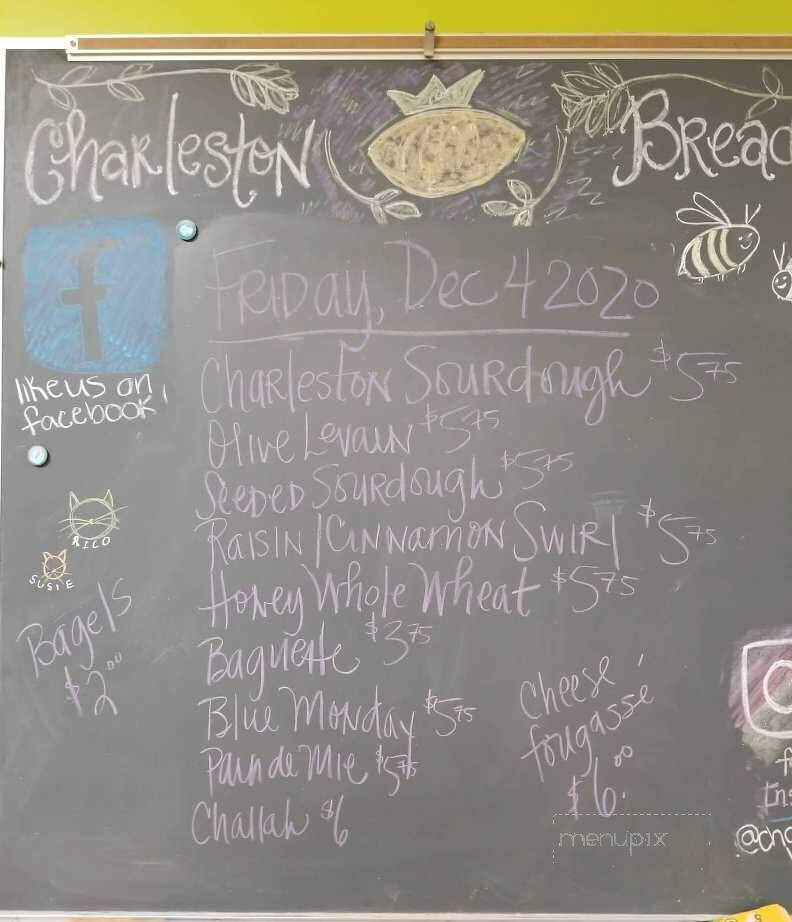 Charleston Bread
f
like us on
facebook!
Friday, Dec 4 2020
Charleston Sourdough $5.75
Olive Levain $5.75
Seeded Sourdough $5.75
Raisin/Cinnamon Swirl $5.75
Honey Whole Wheat $5.75
Baguette $3.75
Blue Monday $5.75
Pain de Mie $5.75
Challah $6
RICO
SUSIE
Bagels
$2.00
Cheese
fougasse
$6.00
menupix